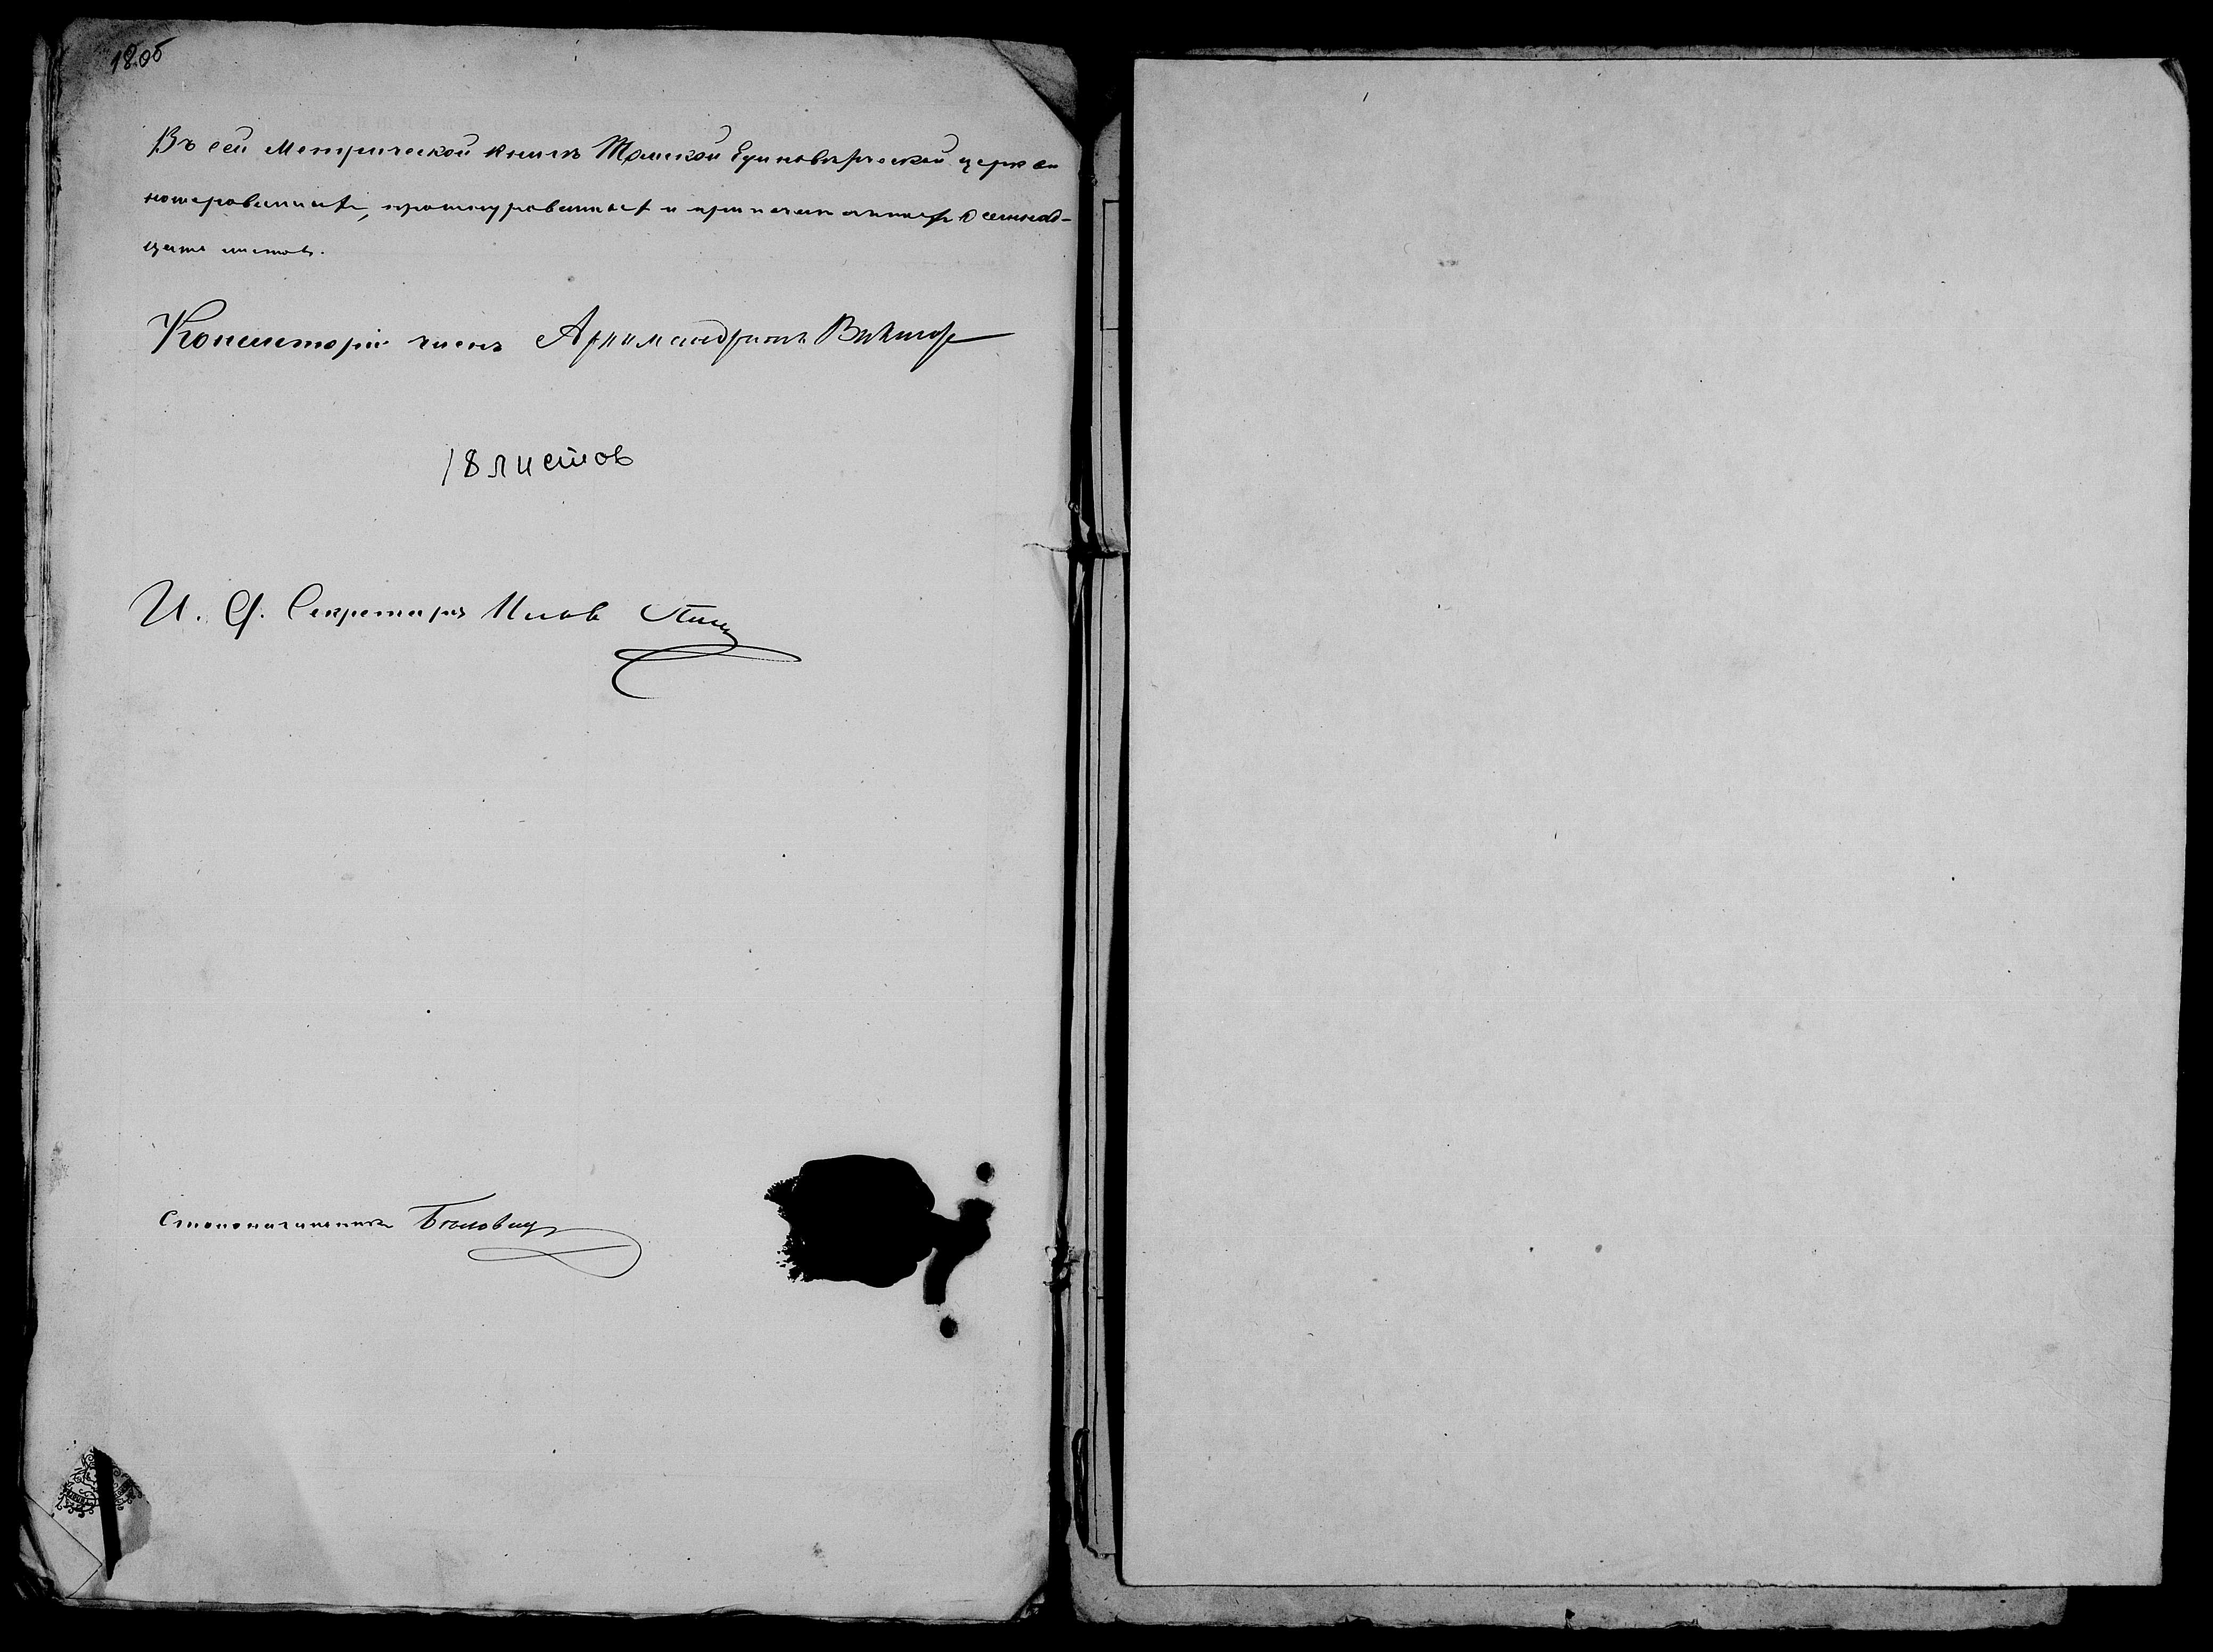 18.об
Въ сей Метрической книгѣ Томской Единовѣрческой церкви
номерованныхъ, прошнурованныхъ и припечатанныхъ осемнад-
цать листовъ.
Консисторіи членъ Архимандритъ Викторъ
18 листов
И. д. Секретаря
Столоначальникъ